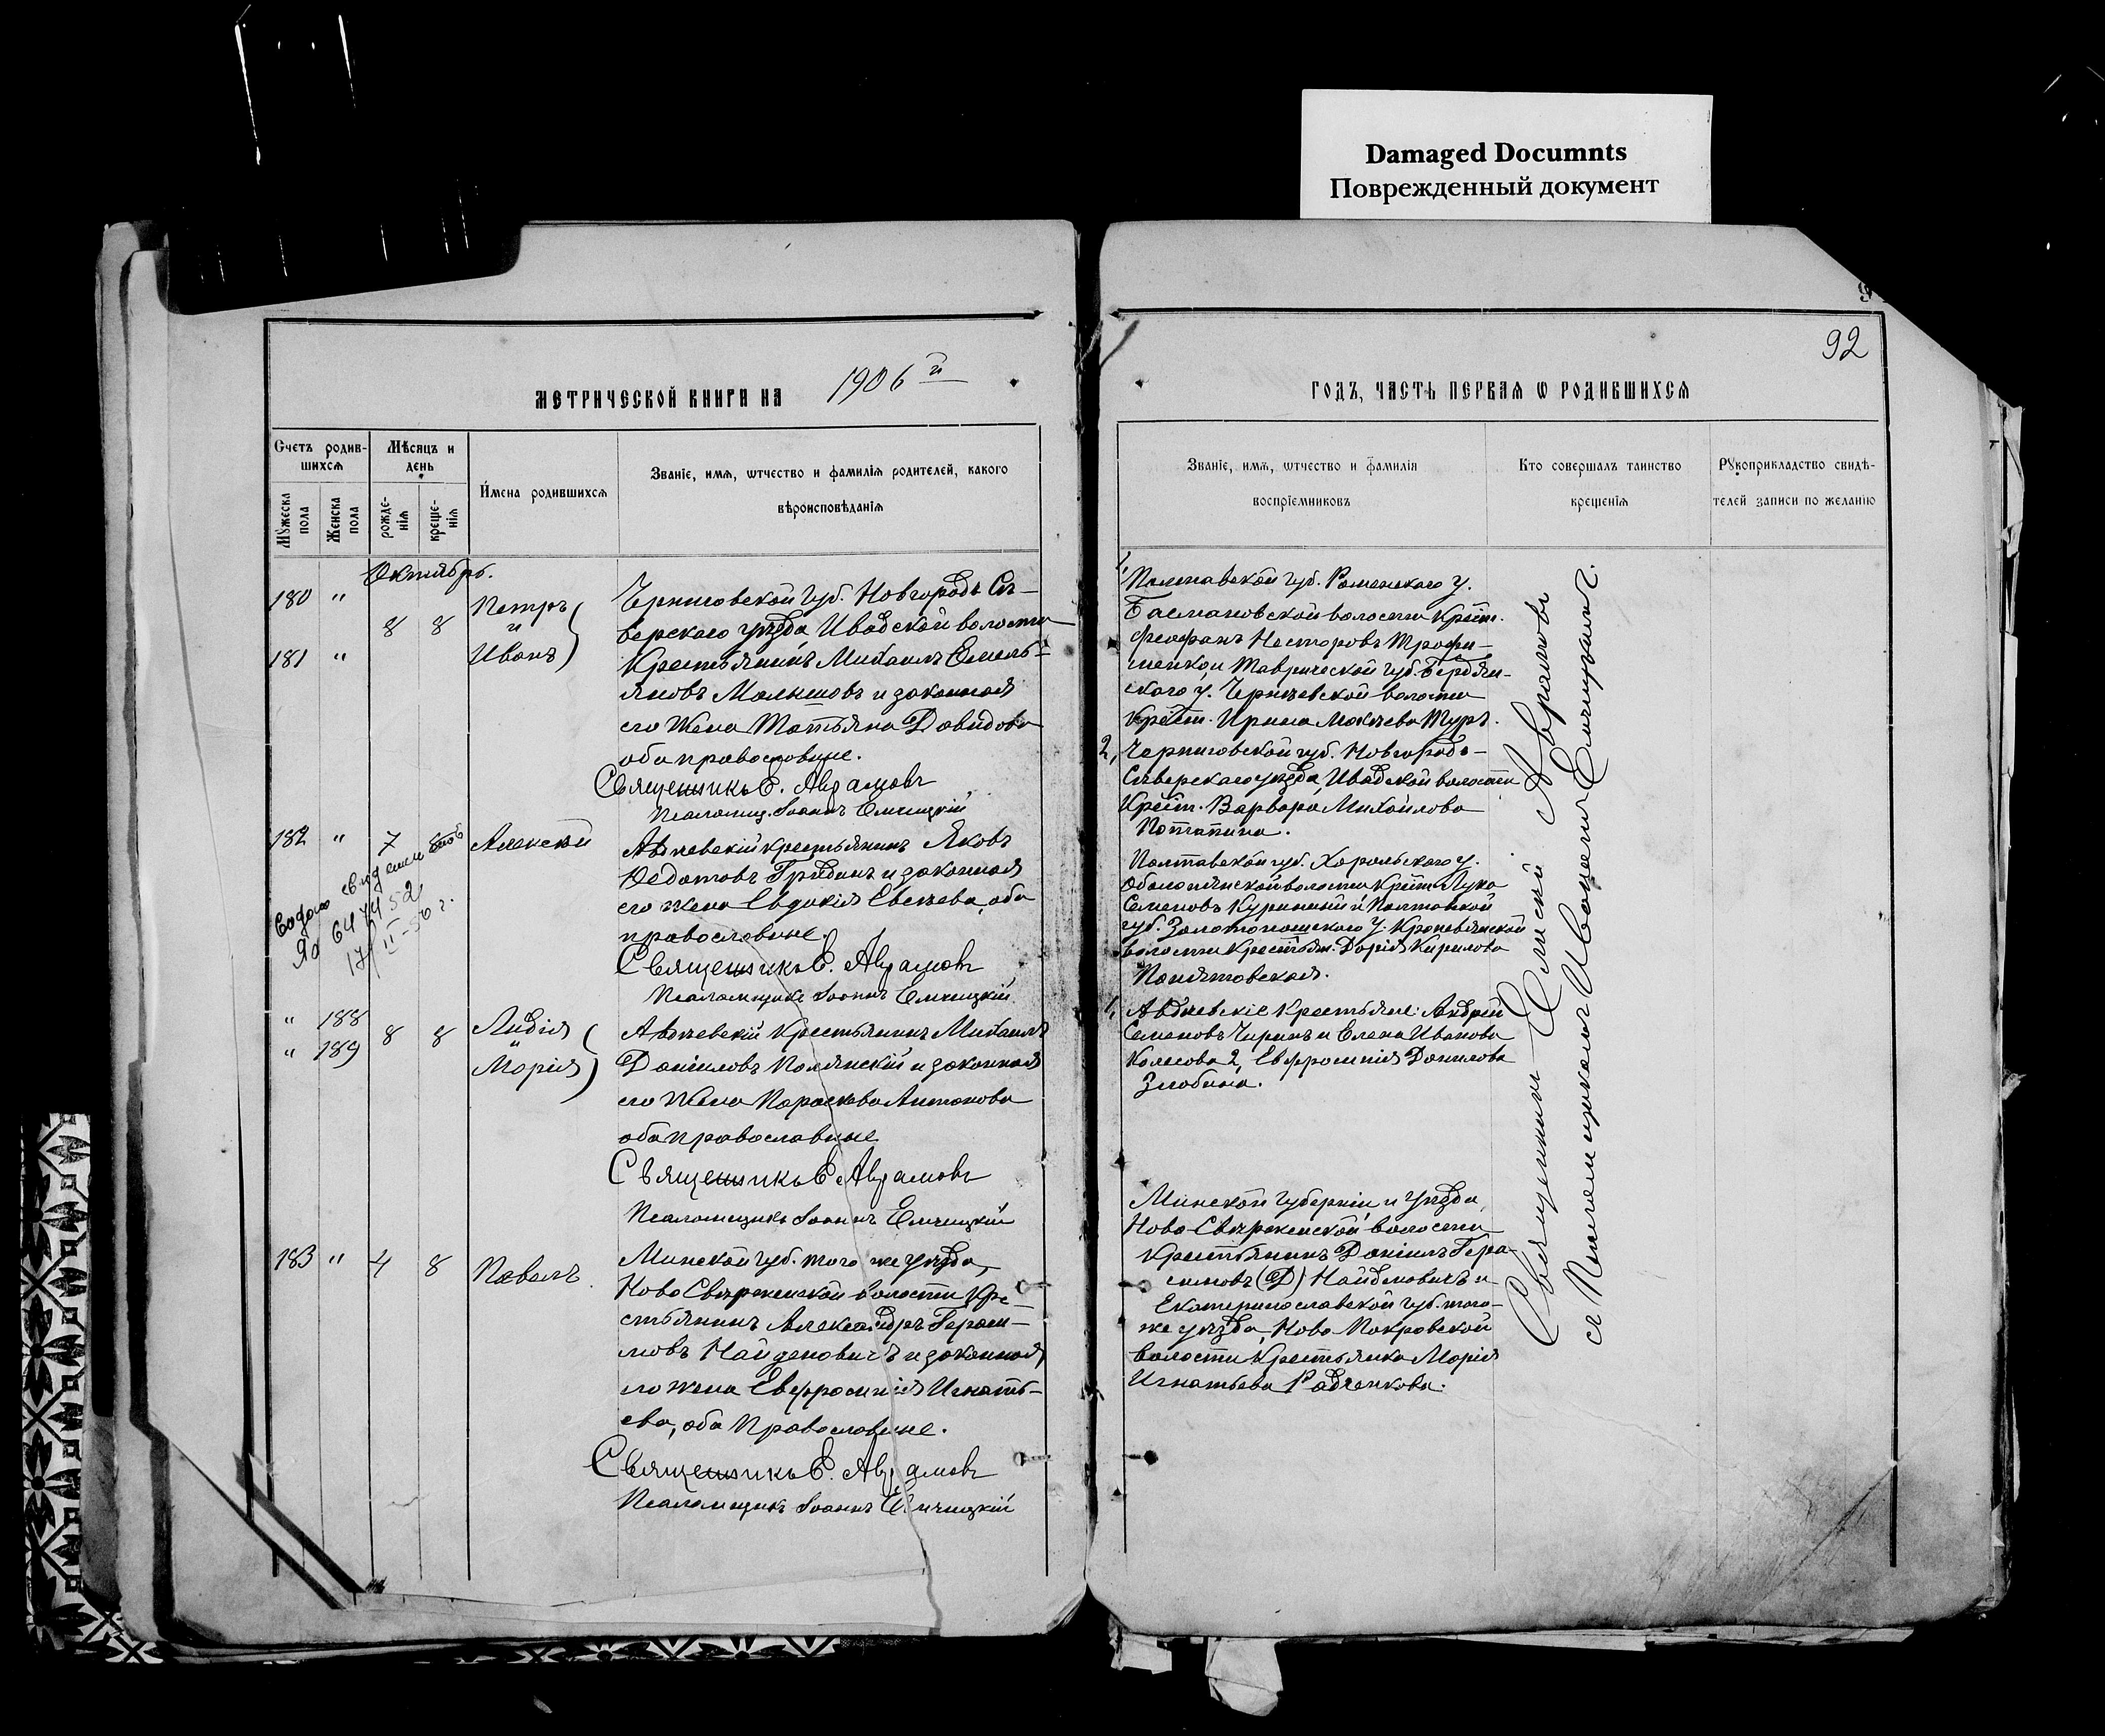 Damaged Documnts
Поврежденный документ
92
МЕТРИЧЕСКОЙ КНИГИ НА 1906 й
ГОДЪ, ЧАСТЬ ПЕРВАЯ Ѡ РОДИВШИХСЯ
Счетъ родив-
шихся
Мѣсяцъ и
день
Мꙋжеска
пола
Женска
пола
рожде-
нія
креще-
нія
Имена родившихся
Званіе, имя, ѡтчество и фамилія родителей, какого
вѣроисповѣданія
Званіе, имя, ѡтчество и фамилія
воспріемниковъ
Кто совершалъ таинство
крещенія
Рꙋкоприкладство свидѣ-
телей записи по желанію
Октябрь.
180 "
181 "
8 8
Петръ
и
Иванъ
Черниговской губ. Новгородъ Сѣ-
верскаго уѣзда Ивадской волости
Крестьянинъ Михаилъ Емель-
яновъ Малышовъ и законная
его жена Татьяна Давидова
оба православные.
Священникъ Е. Аврамовъ
Псаломщ. Іоаннъ Емчицкій
1, Полтавской губ. Роменскаго у.
Басмановской волости Крест.
Феофанъ Несторовъ Трофи-
менко и Таврической губ. Бердян-
скаго у. Черниговской волости
Крест. Ирина Туръ.
2, Черниговской губ. Новгородъ-
Сѣверскаго уѣзда, Ивадской волости
Крест. Варвара Михайлова
Потапина.
182 " 7 8 Алексѣй
64 74 52
17/II-56 г.
Авдѣевскій крестьянинъ Яковъ
Федотовъ Грибанъ и законная
его жена Евдокія Евсѣева, оба
православные.
Священникъ Е. Аврамовъ
Псаломщикъ Іоаннъ Емчицкій
Полтавской губ. Хорольскаго у.
Оболонянской волости Крест. Лука
Семеновъ Куринный и Полтавской
губ. Золотоношскаго у. Кропивянской
волости Крестьян. Дарія Кирилова
Понятовская.
" 188
" 189
8 8
Лидія
и
Марія
Авдѣевскій Крестьянинъ Михаилъ
Даніиловъ Полянскій и законная
его жена Параскева Антонова
оба православные
Священникъ Е. Аврамовъ
Псаломщикъ Іоаннъ Емчицкій
1, Авдѣевскіе Крестьяне: Андрей
Семеновъ Чиринъ и Елена Иванова
Колесова 2, Евфросинія Данилова
Злобина.
183 " 4 8 Павелъ.
Минской губ. того же уѣзда,
Ново Свѣрженской волости Кре-
стьянинъ Александръ Гераси-
мовъ Найденовичъ и законная
его жена Евфросинія Игнать-
ева, оба Православные.
Священникъ Е. Аврамовъ
Псаломщикъ Іоаннъ Емчицкій
Минской Губерніи и уѣзда,
Ново Свѣрженской волости
Крестьянинъ Даніилъ Гера-
симовъ (Д) Найденовичъ и
Екатеринославской губ. того-
же уѣзда, Ново Покровской
волости Крестьянка Марія
Игнатьева Радченкова.
Священникъ Аврамовъ
съ Псаломщикомъ Емчицкимъ